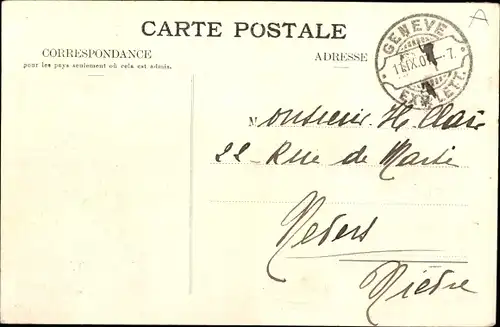 CARTE POSTALE
CORRESPONDANCE
pour les pays seulement où cela est admis.
ADRESSE
GENÈVE
EXP. LETT.
Monsieur H. Clair
22 - Rue de
Nevers
Nièvre
A